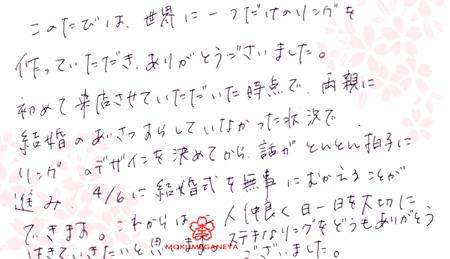 このたびは、世界に一つだけのリングを
作っていただき、ありがとうございました。
初めて来店させていただいた時点で、両親に
結婚のあいさつすらしていなかった状況で
リングのデザインを決めてから、話がとんとん拍子に
進み、4/6に結婚式を無事にむかえることが
できます。これからは、二人仲良く日一日を大切に
いきていきたいと思います。ステキなリングをどうもありがとう
ございました。
MOKUMEGANEYA